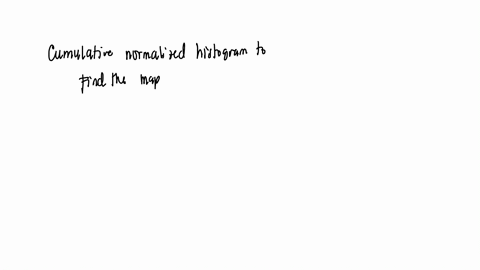 Cumulative normalized histogram to
Find the map